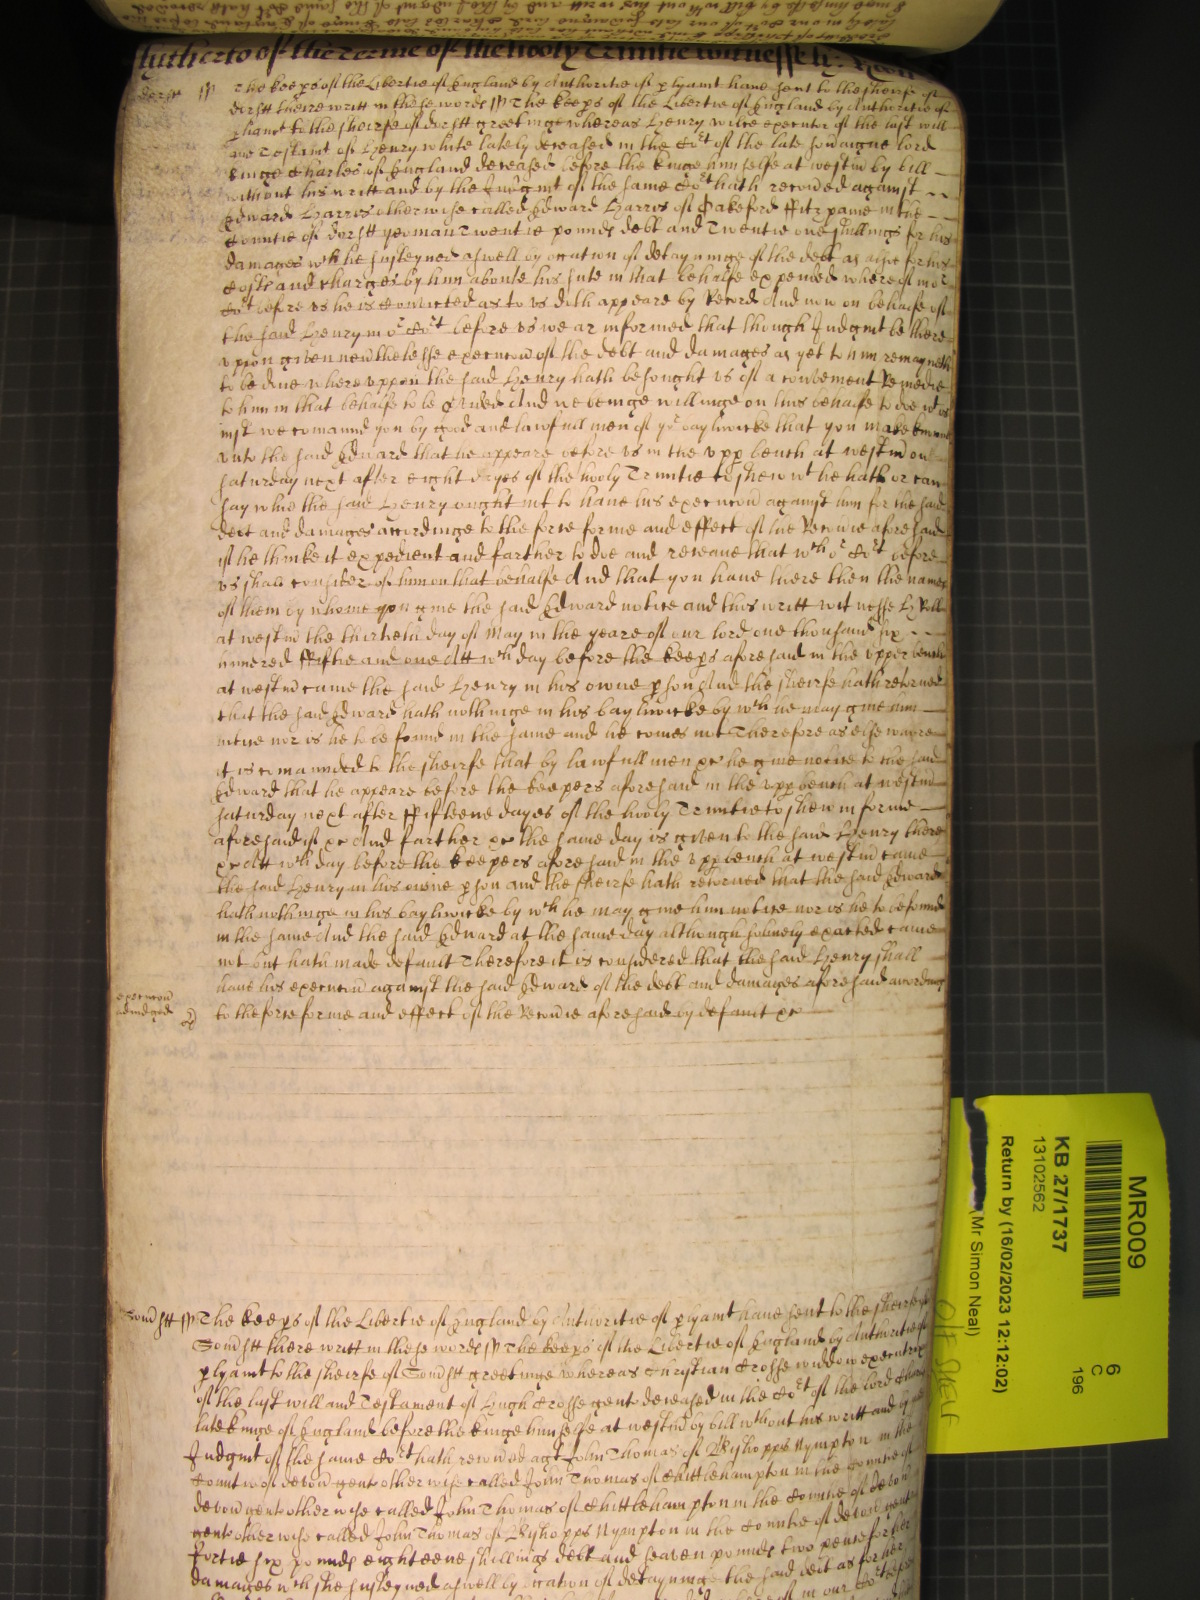 hitherto of the terme of the holy Trinitie witnesseth:
dorstt ss The keeps of the Libertie of England by Authoritie of plyamt have sent to the sheirfe of
dorstt theire writt in these words ss The keeps of the Libertie of England by Authoritie of
pliamt to the sheirfe of dorstt greetinge whereas Henry white executor of the last will
and Testamt of Henry white lately deceased in the Cort of the late soveraigne lord
kinge Charles of England deceased before the kinge himselfe at westm by bill
without his writt and by the Judgmt of the same Cort hath recovered against
Edward Harris otherwise called Edward Harris of Oakeford ffitzpaine in the
Countie of dorstt yeoman Twentie pounds debt and Twentie one shillings for his
damages wch he susteyned aswell by occation of detayninge of the debt as alsoe for his
costs and charges by him aboute his sute in that behalfe expended whereof in or
Cort before us he is convicted as to us doth appeare by Record And now on behalfe of
the said Henry in or Cort before us we ar informed that though Judgmt be there
uppon given neverthelesse execucon of the debt and damages as yet to him remayneth
to be done whereuppon the said Henry hath besought us of a convenient Remedie
to him in that behalfe to be provided And we beinge willinge on this behalfe to doe wt is
just we comannd you by good and lawfull men of yor baylywicke that you make knowne
unto the said Edward that he appeare before us in the upp bench at westm on
saturday next after eight dayes of the holy Trinitie to shew wt he hath or can
say why the said Henry ought not to have his execucon against him for the said
debt and damages accordinge to the force forme and effect of the Recovrie aforesaid
if he thinke it expedient and farther to doe and receave that wch or Cort before
us shall consider of him on that behalfe And that you have there then the names
of them by whome you give the said Edward notice and this writt witnesse H Rolle
at westm the thirtieth day of May in the yeare of our lord one thousand six
hundred ffiftie and one Att wch day before the keeps aforesaid in the upper bench
at westm came the said Henry in his owne pson And the sheirfe hath returned
that the said Edward hath nothinge in his baylywicke by wch he may give him
notice nor is he to be found in the same and he comes not Therefore as elsewhere
it is comannded to the sheirfe that by lawfull men &c he give notice to the said
Edward that he appeare before the keepers aforesaid in the upp bench at westm
saturday next after ffifteene dayes of the holy Trinitie to shew in forme
aforesaid if &c And farther &c the same day is given to the said Henry there
&c Att wch day before the keepers aforesaid in the upp bench at westm came
the said Henry in his owne pson and the sheirfe hath returned that the said Edward
hath nothinge in his baylywicke by wch he may give him notice nor is he to be found
in the same And the said Edward at the same day although solemly exacted came
not but hath made default Therefore it is considered that the said Henry shall
have his execucon against the said Edward of the debt and damages aforesaid accordinge
execucon
adiudged
to the force forme and effect of the Recovrie aforesaid by default &c
Somstt ss The keeps of the Libertie of England by Authoritie of plyamt have sent to the sheirfe of
Somstt there writt in these words ss The keeps of the Libertie of England by Authoritie of
plyamt to the sheirfe of Somstt greetinge whereas Christian Crosse widdow executrix
of the last will and Testament of Hugh Crosse gent deceased in the Cort of the lord Charles
late kinge of England before the kinge himselfe at westm by bill wthout his writt and by the
Judgmt of the same Cort hath recoved agt John Thomas of Bishopps Nympton in the
Countie of devon gent otherwise called John Thomas of Chittlehampton in the Countie of
devon gent otherwise called John Thomas of Chittlehampton in the Countie of devon
gent otherwise called John Thomas of Bishopps Nympton in the Countie of devon gent
fortie six pounds eighteene shillings debt and seaven pounds two pence for her
damages wch she susteyned aswell by occation of detayninge the said debt as for her
in our Cort before
MR009
KB 27/1737
13102562
Return by (16/02/2023 12:12:02)
(Mr Simon Neal)
6
C
196
O/S SHELF